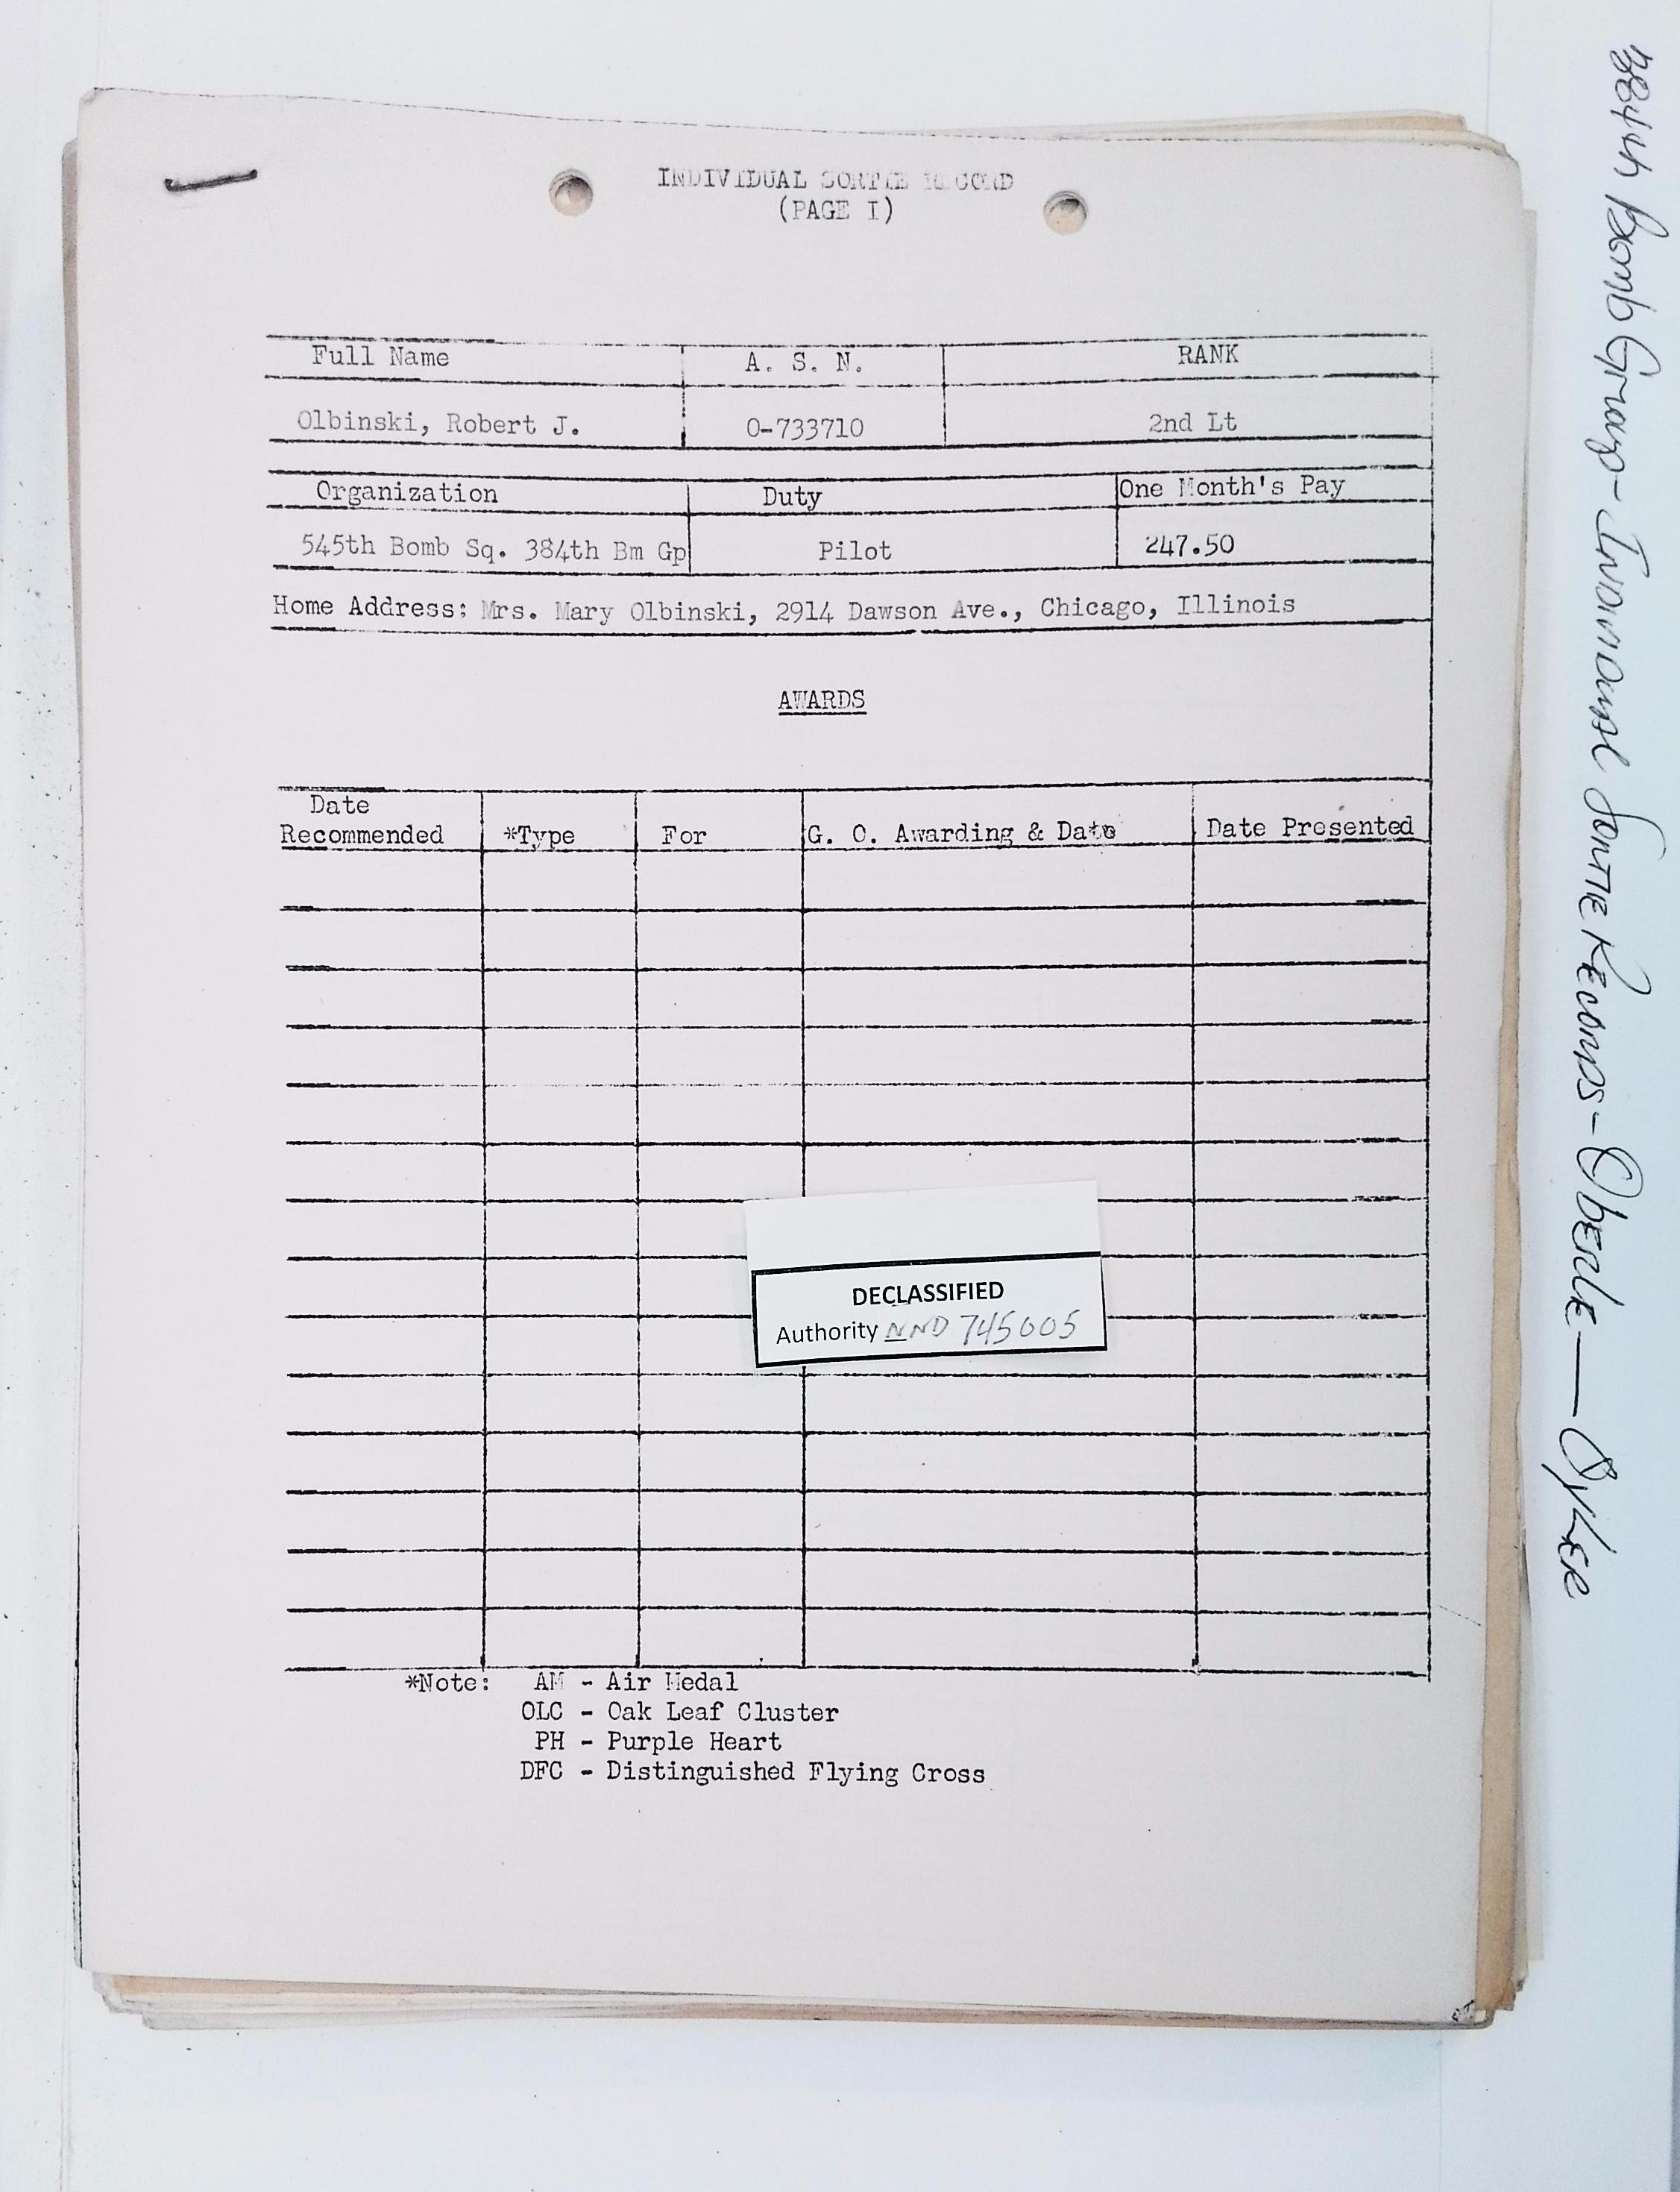 INDIVIDUAL SORTIE RECORD
(PAGE I)
Full Name A. S. N. RANK
Olbinski, Robert J. O-733710 2nd Lt
Organization Duty One Month's Pay
545th Bomb Sq. 384th Bm Gp Pilot 247.50
Home Address: Mrs. Mary Olbinski, 2914 Dawson Ave., Chicago, Illinois
AWARDS
Date
Recommended *Type For G. O. Awarding & Date Date Presented
DECLASSIFIED
Authority NND 745005
*Note: AM - Air Medal
OLC - Oak Leaf Cluster
PH - Purple Heart
DFC - Distinguished Flying Cross
384th Bomb Group - Individual Sortie Records - Oberle — Oyler